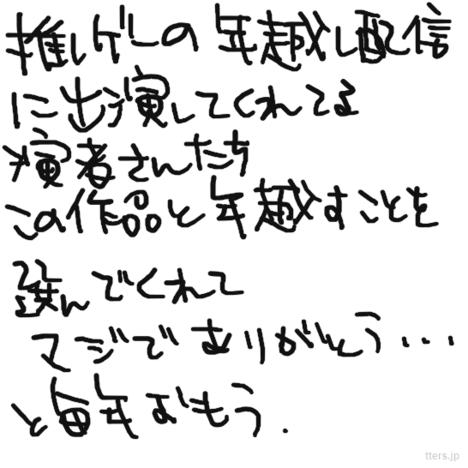 推しゲーの年越し配信
に出演してくれてる
演者さんたち
この作品と年越すことを
選んでくれて
マジでありがとう...
と毎年おもう.
tters.jp